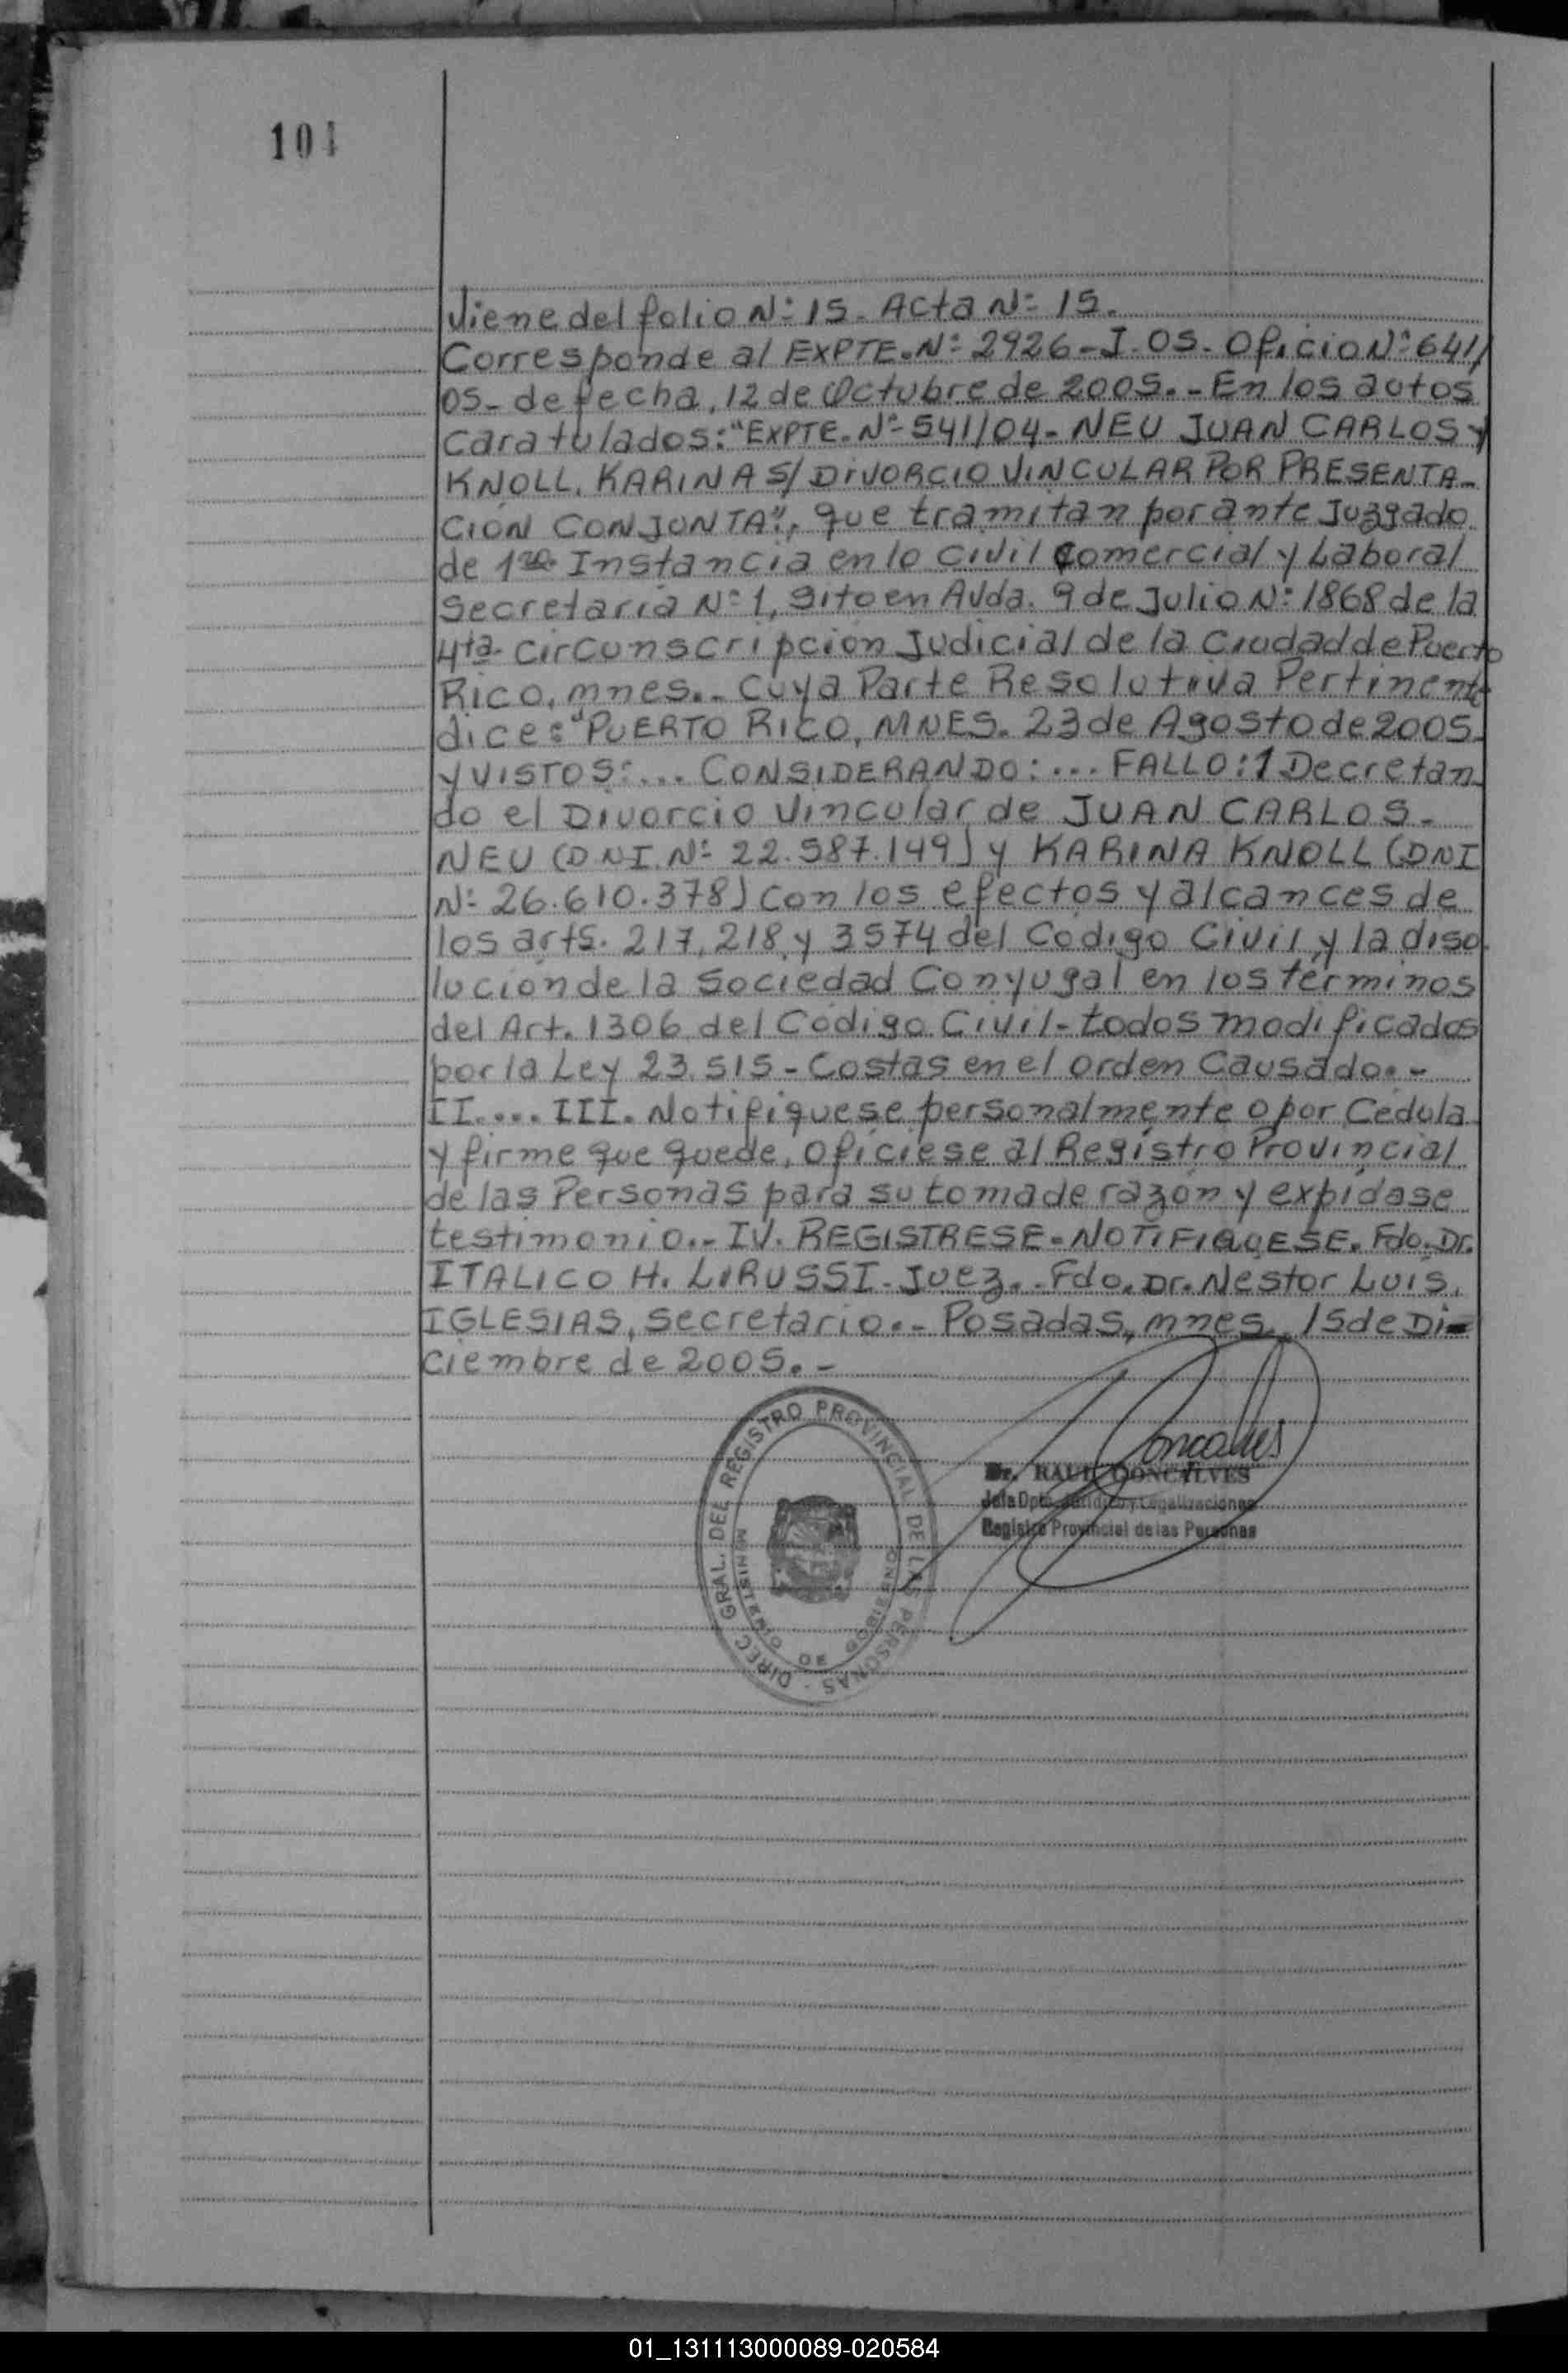 104
Viene del folio N: 15. Acta N: 15.
Corresponde al EXPTE. N: 2926-J-05- Oficio N: 641/
05- de fecha, 12 de Octubre de 2005.- En los autos
Caratulados: "EXPTE. N: 541/04- NEU JUAN CARLOS y
KNOLL, KARINA S/ DIVORCIO VINCULAR POR PRESENTA-
CIÓN CONJUNTA", que tramitan por ante Juzgado
de 1ra Instancia en lo Civil Comercial y Laboral
Secretaría N: 1, sito en Avda. 9 de Julio N: 1868 de la
4ta. Circunscripción Judicial de la Ciudad de Puerto
Rico, mnes.- Cuya Parte Resolutiva Pertinente
dice: "PUERTO RICO, MNES. 23 de Agosto de 2005.
Y VISTOS:... CONSIDERANDO:... FALLO: 1 Decretan-
do el Divorcio Vincular de JUAN CARLOS-
NEU (D.N.I. N: 22.587.149) y KARINA KNOLL (DNI
N: 26.610.378) con los efectos y alcances de
los arts. 217, 218, y 3574 del Código Civil, y la diso
lución de la Sociedad Conyugal en los términos
del Art. 1306 del Código Civil- todos modificados
por la Ley 23.515- Costas en el orden Causado.-
II.... III. Notifíquese personalmente o por Cédula
y firme que quede, ofíciese al Registro Provincial
de las Personas para su toma de razón y expídase
testimonio.- IV. REGISTRESE- NOTIFIQUESE. Fdo. Dr.
ITALICO H. LIRUSSI- Juez.- Fdo. Dr. Nestor Luis,
IGLESIAS, Secretario.- Posadas, mnes, 15 de Di-
ciembre de 2005.-
DIREC. GRAL. DEL REGISTRO PROVINCIAL DE LAS PERSONAS
MINISTERIO DE GOBIERNO
Goncalves
Dr. RAUL GONCALVES
Jefe Dpto. Jurídico y Legalizaciones
Registro Provincial de las Personas
01_131113000089-020584